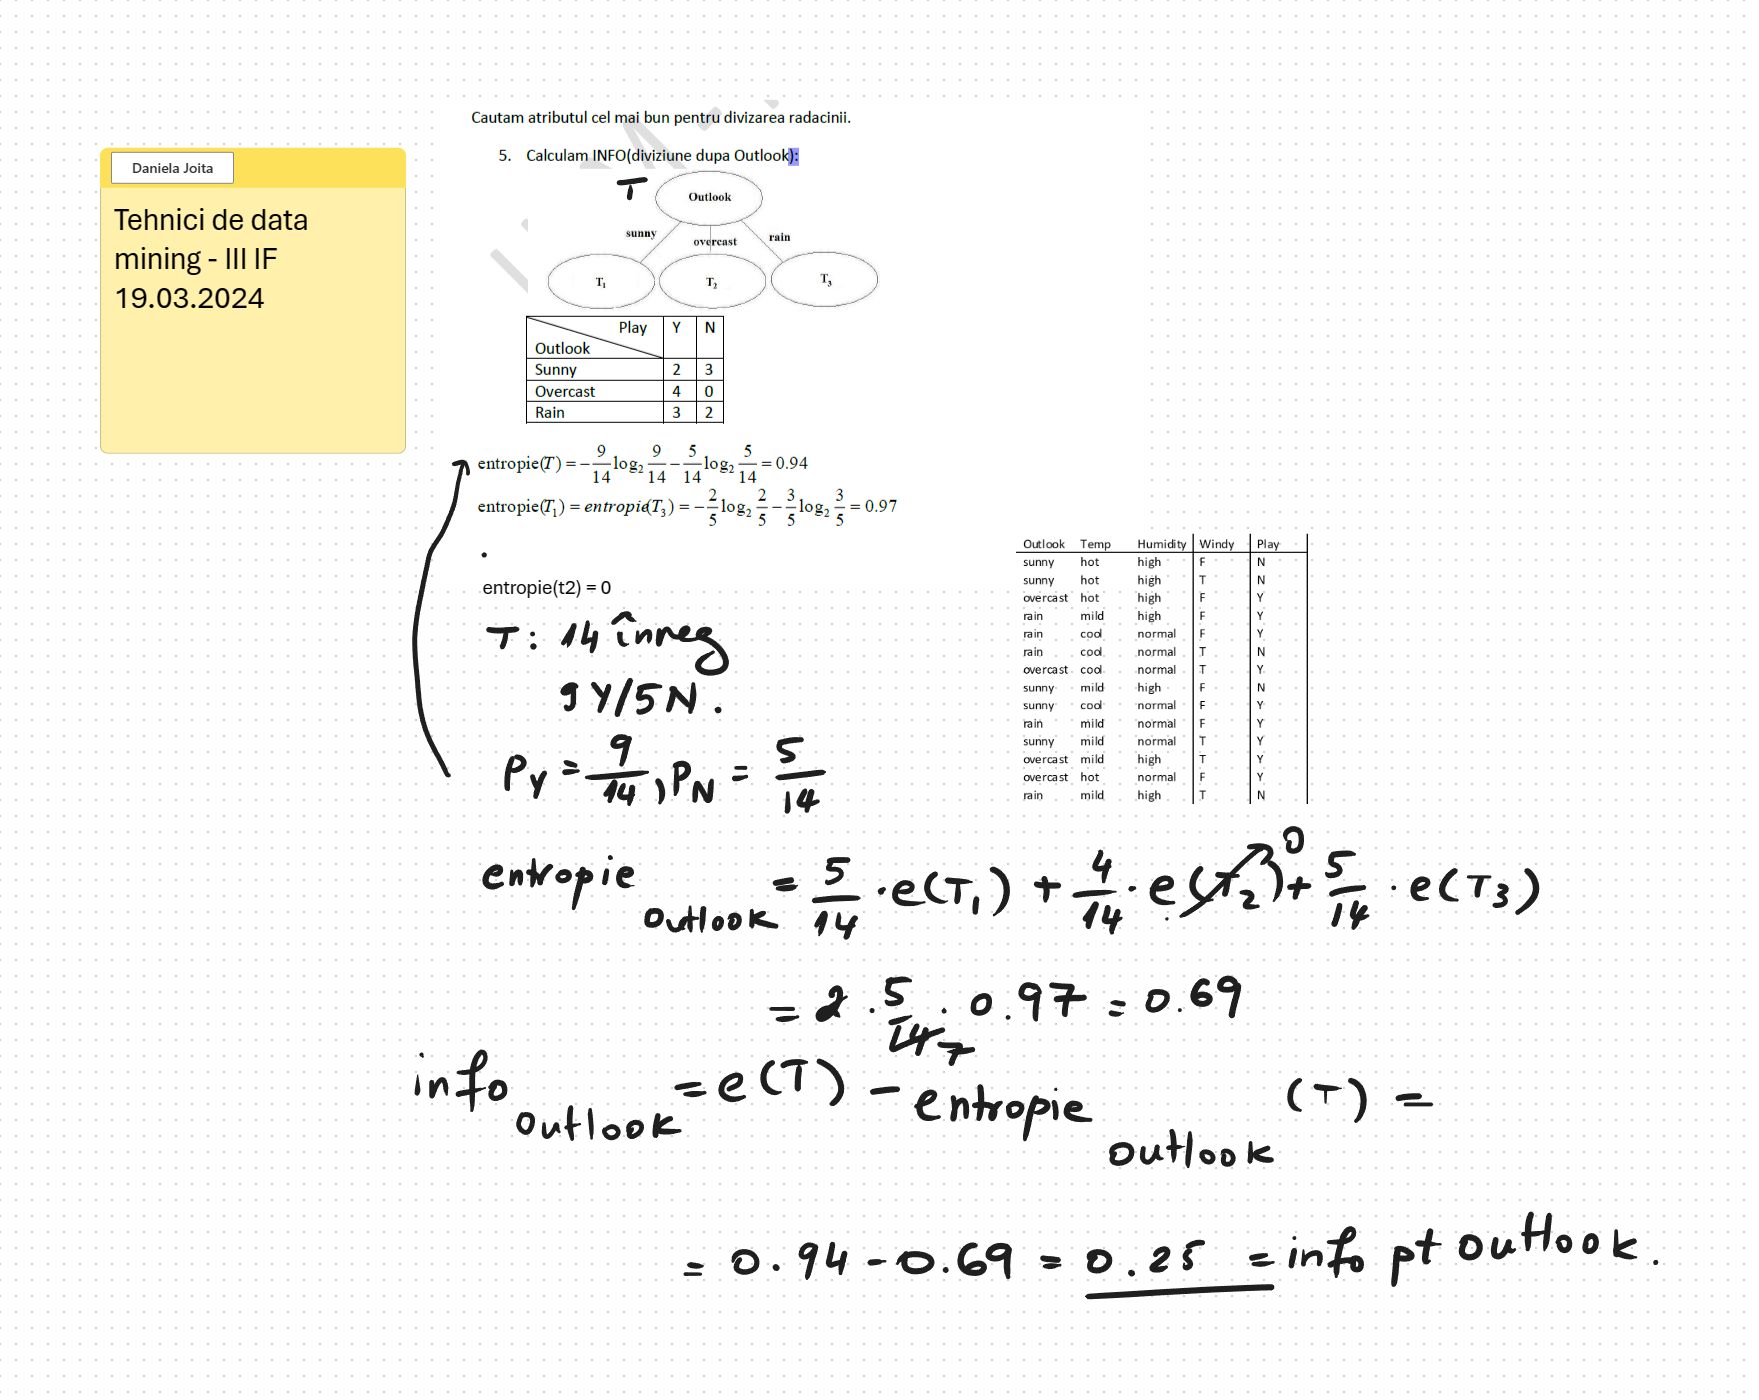 Daniela Joita
Tehnici de data
mining - III IF
19.03.2024
Cautam atributul cel mai bun pentru divizarea radacinii.
5. Calculam INFO(diviziune dupa Outlook):
T
Outlook
sunny overcast rain
T₁ T₂ T₃
Play Y N
Outlook
Sunny 2 3
Overcast 4 0
Rain 3 2
entropie(T) = -9/14 log₂ 9/14 - 5/14 log₂ 5/14 = 0.94
entropie(T₁) = entropie(T₃) = -2/5 log₂ 2/5 - 3/5 log₂ 3/5 = 0.97
.
entropie(t2) = 0
T: 14 înreg
9Y/5N.
P_Y = 9/14, P_N = 5/14
Outlook Temp Humidity Windy Play
sunny hot high F N
sunny hot high T N
overcast hot high F Y
rain mild high F Y
rain cool normal F Y
rain cool normal T N
overcast cool normal T Y
sunny mild high F N
sunny cool normal F Y
rain mild normal F Y
sunny mild normal T Y
overcast mild high T Y
overcast hot normal F Y
rain mild high T N
entropie outlook = 5/14 · e(T₁) + 4/14 · e(T₂) 0 + 5/14 · e(T₃)
= 2 · 5/14 7 · 0.97 = 0.69
info outlook = e(T) - entropie outlook (T) =
= 0.94 - 0.69 = 0.25 = info pt outlook.